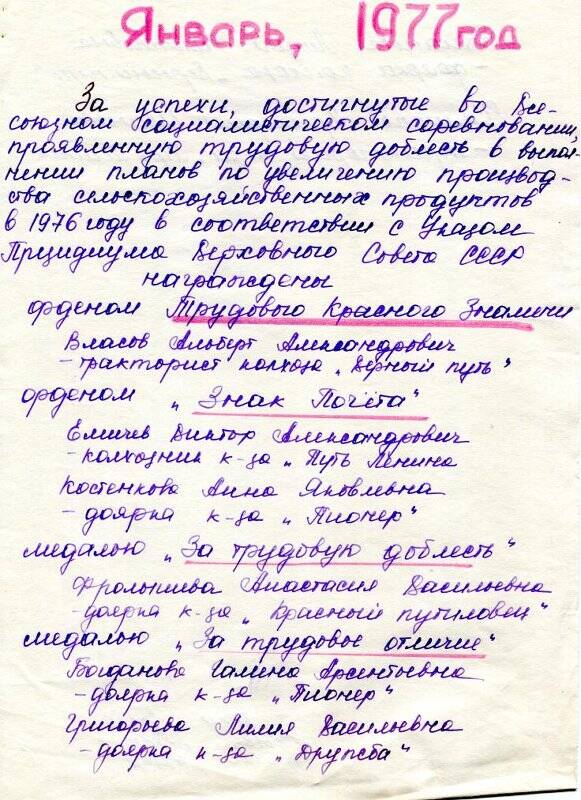 Январь, 1977 год
За успехи, достигнутые во Все-
союзном социалистическом соревновании,
проявленную трудовую доблесть в выпол-
нении планов по увеличению производ-
ства сельскохозяйственных продуктов
в 1976 году в соответствии с Указом
Призидиума Верховного Совета СССР
награждены
орденом Трудового Красного Знамени
Власов Альберт Александрович
- тракторист колхоза „Верный путь"
орденом „Знак Почёта"
Емичев Виктор Александрович
- колхозник к-за „Путь Ленина
Костенкова Анна Яковлевна
- доярка к-за „Пионер"
медалью „За трудовую доблесть"
Анастасия Васильевна
- доярка к-за „Красный путиловец"
медалью „За трудовое отличие"
Богданова Галина Арсентьевна
- доярка к-за „Пионер"
Григорьева Лилия Васильевна
- доярка к-за „Дружба"